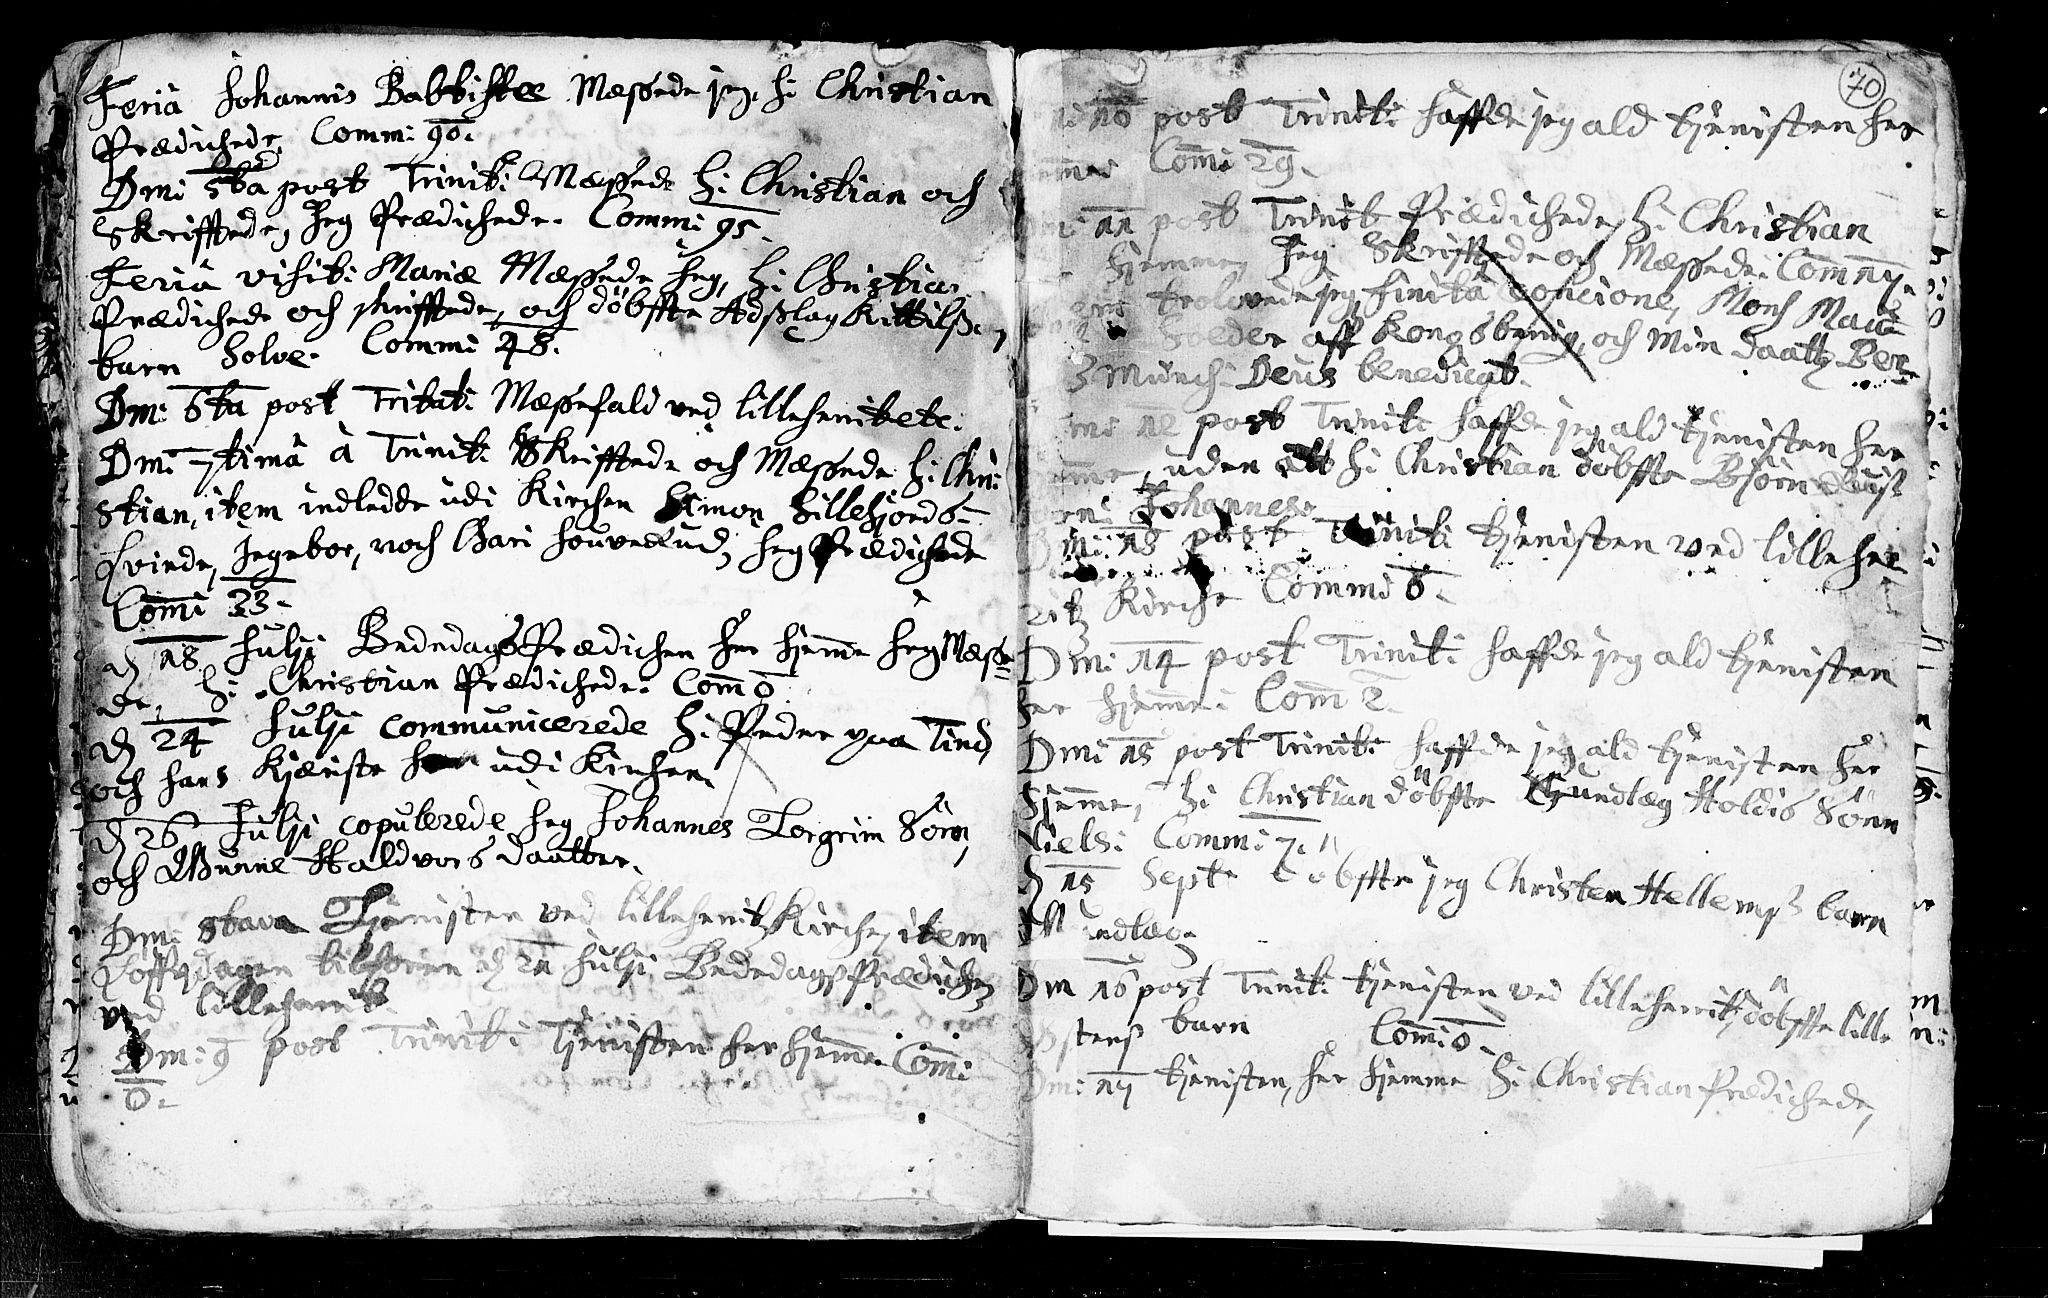 Feria Johannis Babtistæ Messede jeg, H: Christian
Prædichede, Comm: 90.
Dmi 5ta post Trinit: Messede H: Christian och
Skrifftede, Jeg Prædichede. Commi 95.
Feria visit: Mariæ Messede Jeg, H: Christian
Prædichede och skrifftede, och döbffte Adßlag Kittilß
barn Solve. Commi 48.
Dmi 6ta post Tritat: Messefald ved lilleherritetc.
Dmi 7tima à Trinit: Skrifftede och Messede H: Chri
stian, item indledde udi Kirchen Simon Lillefjords
qvinde, Ingebor, noch Gari, Jeg Prædichede
Comi 33.
d 18 Julji Bededags Prædichen her hjemme Jeg Messe
de, H: Christian Prædichede. Com 0
d 24 Julji communicerede H: Peder paa Tind
och hans Kjæriste udi Kirchen.
d 26 Julji copulerede Jeg Johannes Torgrim Sönn,
och Gunne Haldvors daatter.
Dmi 8tava Tjenisten ved lilleherritz Kirche, item
Löffverdagen tilforne d 21 Julji Bededags Prædichen
ved lilleherrit.
Dmi: 9 post Trinit: Tjenisten her hjemme. Comi
0.
70
10 post Trinit: haffde jeg ald tjenisten her
Comi 29.
11 post Trinit Prædichede H: Christian
hjemme, Jeg Skrifftede och Messede. Com 17.
trolovede jeg finita Concione, Mons
aff Kongsberrig, och Min daatter Ber
Munch: Deus benedicat.
12 post Trinit: haffde jeg ald tjenisten her
uden att H: Christian döbffte Björn
Johannes.
Dmi: 13 post Trinit: tjenisten ved lilleher
ritz Kirche Commi 6.
Dmi 14 post Trinit: haffde jeg ald tjenisten
her hjemme: Com 2.
Dmi 15 post Trinit: haffde jeg ald tjenisten her
hjemme, H: Christian döbffte Gundlæg Holdis Sönn
Niels: Commi 7.
d 15 Sept: döbffte jeg Christen Hellemß barn
Gundlæg.
Dm 16 post Trinit: tjenisten ved lilleherrit, döbffte lille
barn Comi 0.
Dmi: 17 tjenisten, her hjemme H: Christian Prædichede,